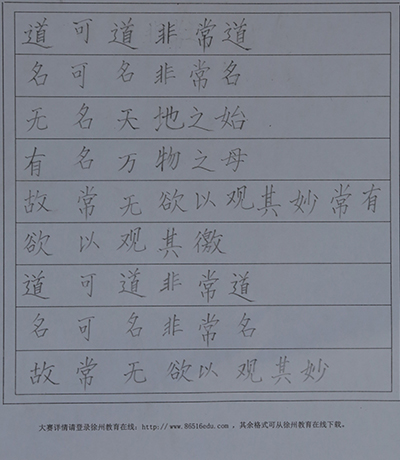 道可道非常道
名可名非常名
无名天地之始
有名万物之母
故常无欲以观其妙常有
欲以观其徼
道可道非常道
名可名非常名
故常无欲以观其妙
大赛详情请登录徐州教育在线: http://www.86516edu.com 。其余格式可从徐州教育在线下载。